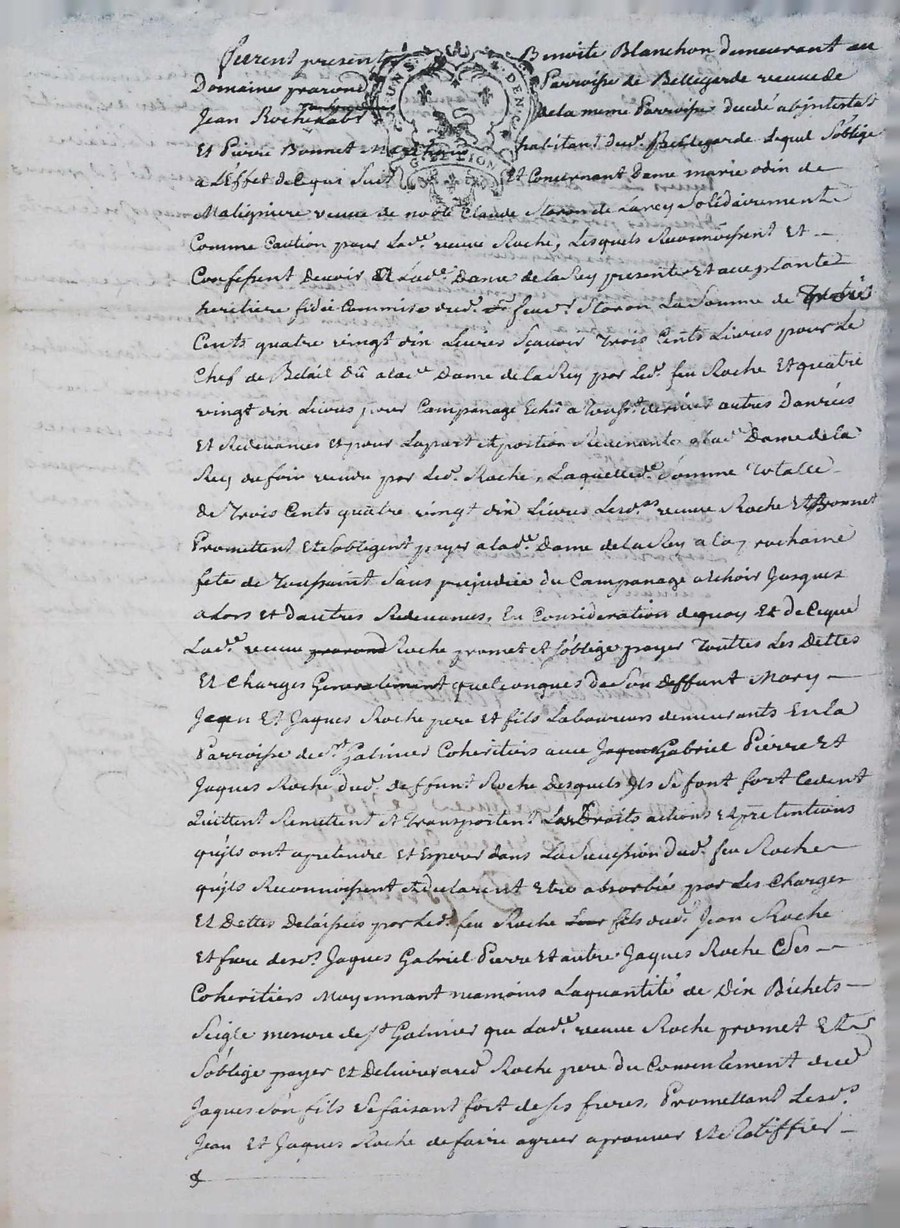 furent presents Benoite Blanchon demeurant au
Domaine pravond Parroisse de Bellegarde veuve de
Jean Roche Lab de la meme Parroisse decedé abintestat
Et Pierre Bonnet Marchand habitant dud. Bellegarde Lequel s'oblige
a L'Effet de Ce qui suit Et Concernant Dame marie odin de
Maligniere veuve de noble Claude Staron de Larey Solidairement
Comme Caution pour Lad.e veuve Roche, Lesquels Reconnoissent Et
Confessent Devoir a Lad.e Dame de la Rey presente et acceptante
heritiere fidei Commise dud. feu s.r Staron La Somme de trois
Cents quatre vingt dix Livres Sçavoir Trois Cents Livres pour Le
Chef de Bétail Dû a lad.e Dame de la Rey par Led. feu Roche Et quatre
vingt dix Livres pour Campanage Echû a Touss.t dernier autres Danrées
Et Redevances et pour La part et portion Revenante a lad.e Dame de la
Rey du foin vendu par Led. Roche, Laquelle d.e Somme Totalle
de Trois Cents quatre vingt dix Livres Lesd.s veuve Roche Et Bonnet
Promettent Et s'obligent payer a lad.e Dame de la Rey a la prochaine
fete de Toussaint Sans prejudice du Campanage a Echoir Jusques
a Lors Et d'autres Redevances, En Consideration de quoy Et de Ce que
Lad.e veuve pravond Roche promet et s'oblige payer Touttes Les Dettes
Et Charges Generalement quelconques de Son deffunt Mary
Jean Et Jaques Roche pere et fils Laboureurs demeurants En la
Parroisse de S.t Galmier Coheritiers avec Jaques Gabriel Pierre Et
Jaques Roche dud. deffunt Roche Desquels ils Se font fort Cedent
Quittent Remettent Et Transportent Les Droits actions Et pretentions
qu'ils ont a pretendre Et Esperer dans La Succession dud. feu Roche
qu'ils Reconnoissent Et declarent Etre absorbée par Les Charges
Et Dettes Delaissées par Led. feu Roche Leur fils dud. Jean Roche
Et frere desd.s Jaques Gabriel Pierre Et autre Jaques Roche Ses
Coheritiers Moyennant neamoins La quantité de Dix Bichets
Seigle mesure de S.t Galmier que Lad.e veuve Roche promet Et
s'oblige payer Et Delivrer aud. Roche pere du Consentement dud.
Jaques Son fils Se faisant fort de Ses freres, Promettant Lesd.s
Jean Et Jaques Roche de faire agreer aprouver Et Ratiffier
&